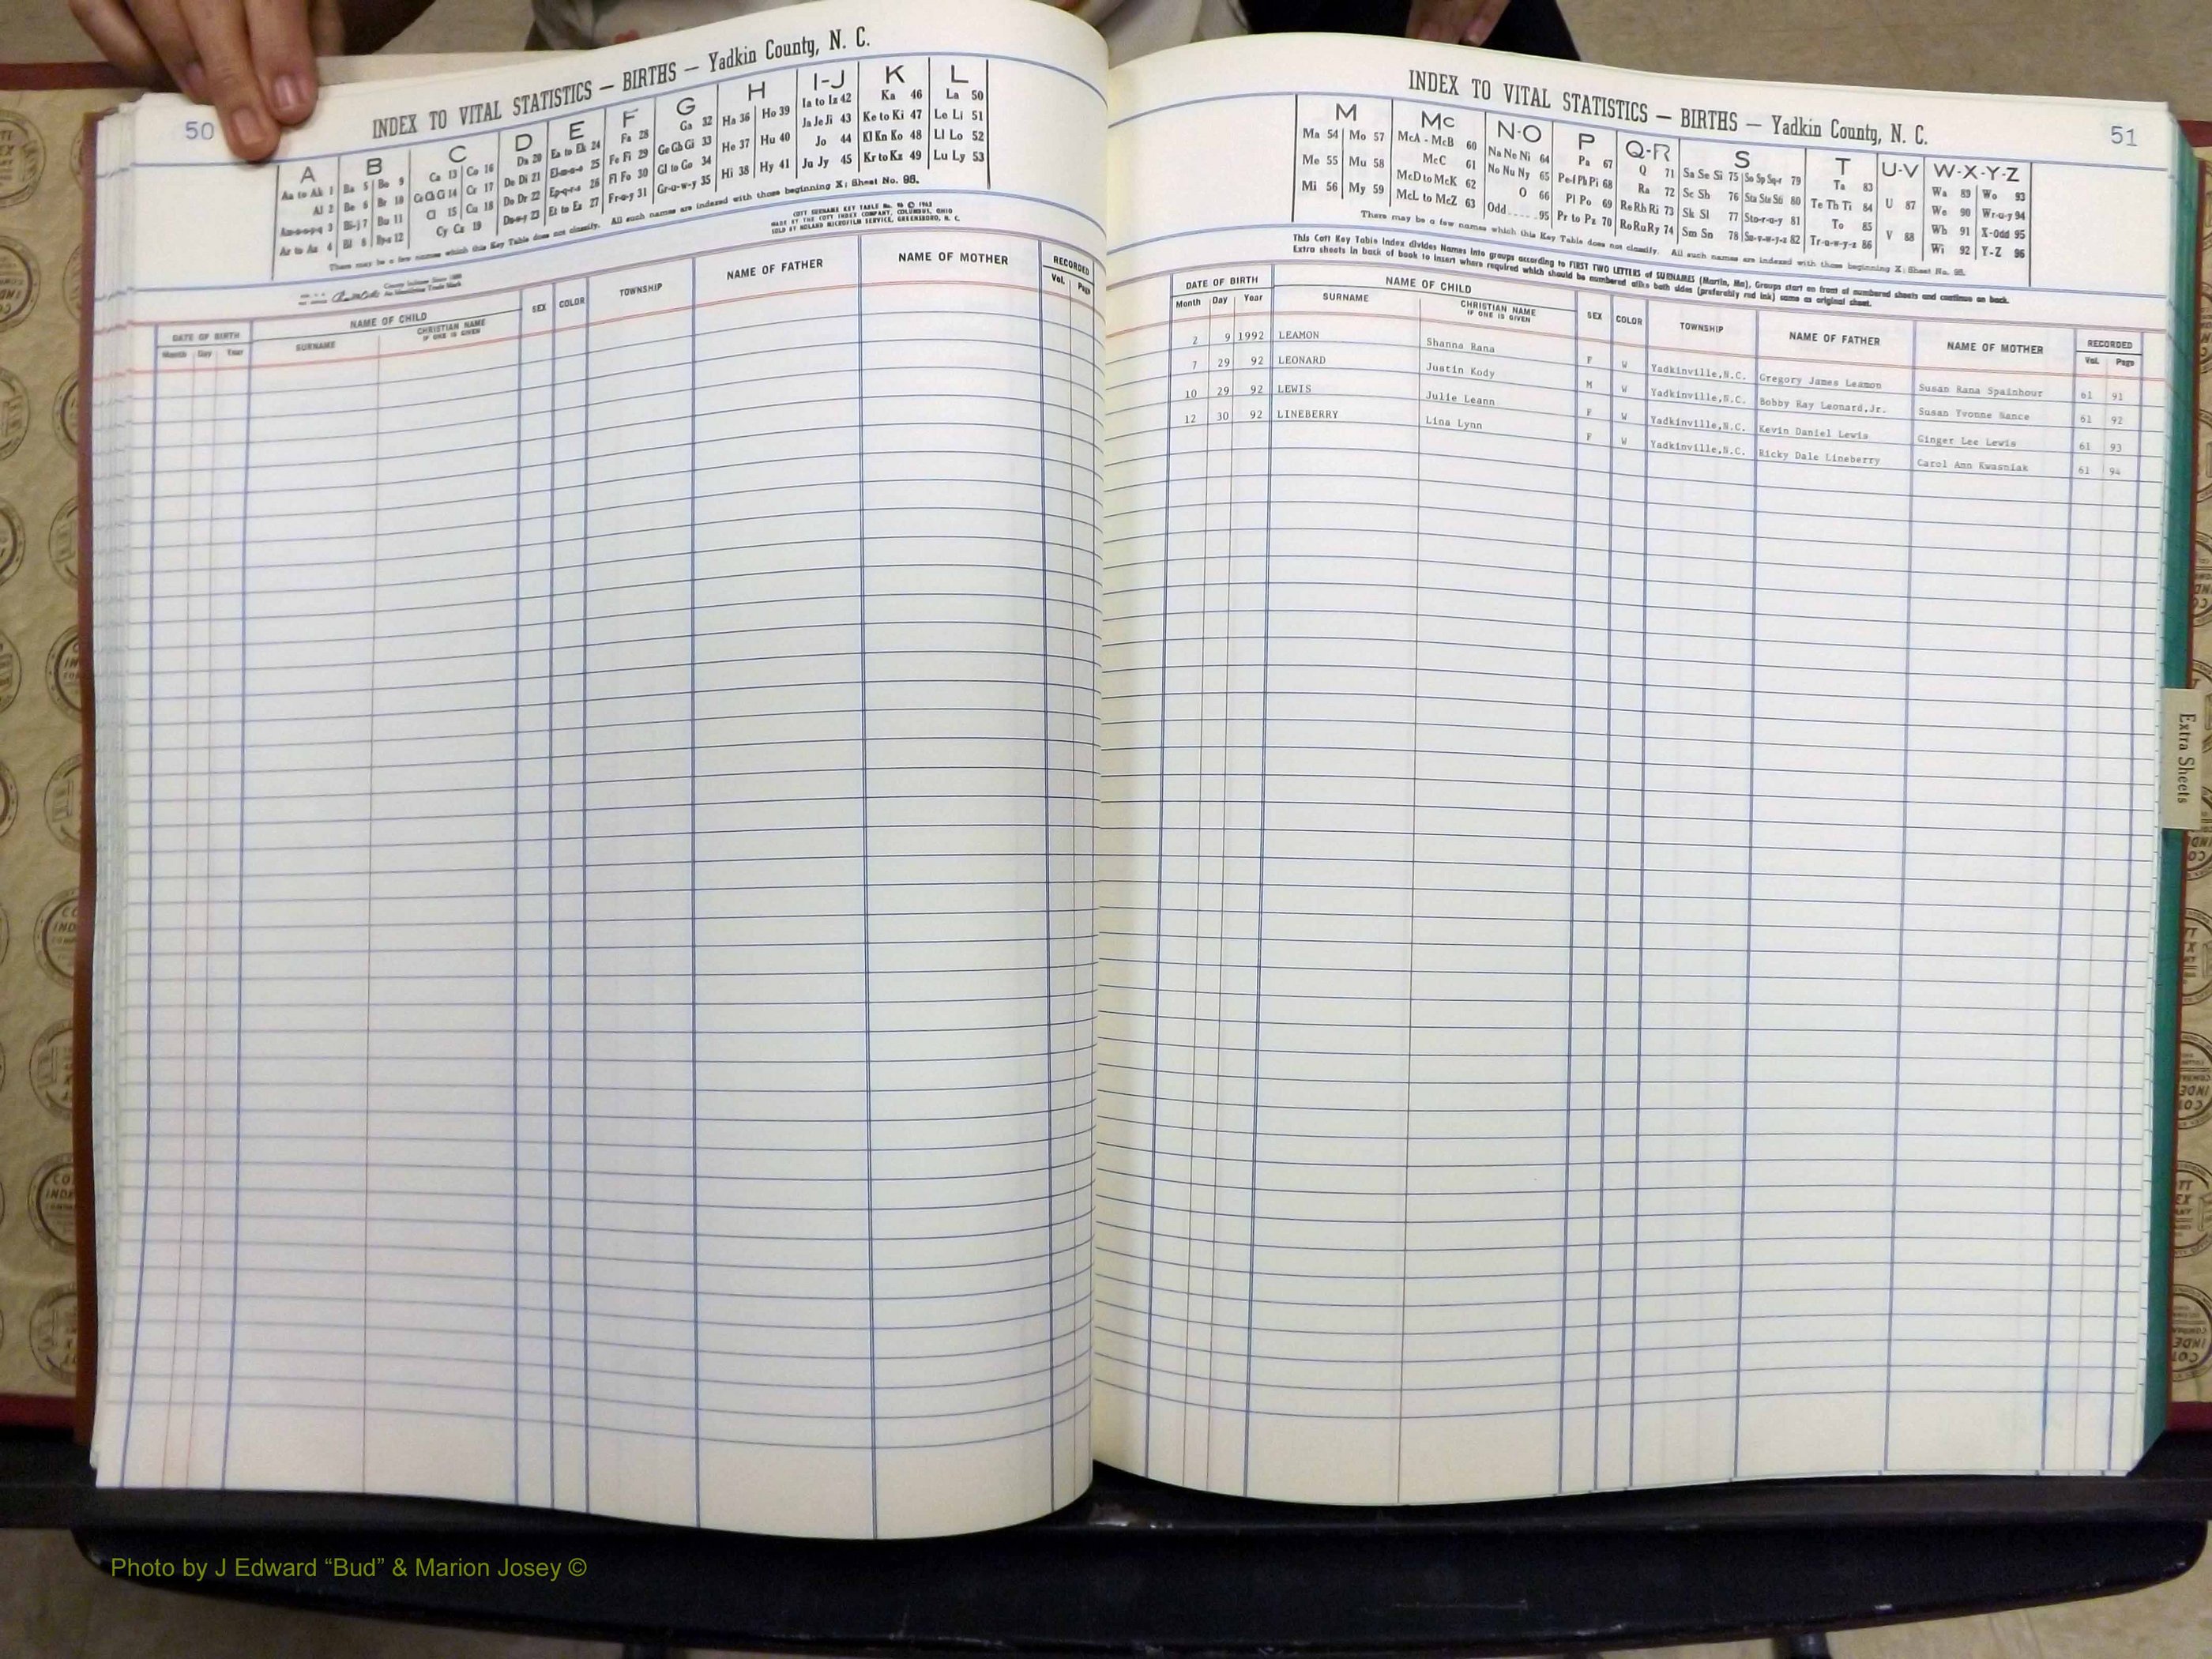 50
INDEX TO VITAL STATISTICS — BIRTHS — Yadkin County, N. C.
A B C D E F G H I-J K L
Aa to Ak 1 Ba 5 Bo 9 Ca 13 Co 16 Da 20 Ea to Ek 24 Fa 28 Ga 32 Ha 36 Ho 39 Ia to Iz 42 Ka 46 La 50
Al 2 Be 6 Br 10 Ce Ch Ci 14 Cr 17 De Di 21 El-m-n-o 25 Fe Fi 29 Ge Gh Gi 33 He 37 Hu 40 Ja Je Ji 43 Ke to Ki 47 Le Li 51
Am-n-o-p-q 3 Bi-j 7 Bu 11 Cl 15 Cu 18 Do Dr 22 Ep-q-r-s 26 Fl Fo 30 Gl to Go 34 Hi 38 Hy 41 Jo 44 Kl Kn Ko 48 Ll Lo 52
Ar to Az 4 Bl 8 By-z 12 Cy Cz 19 Du-w-y 23 Et to Ez 27 Fr-u-y 31 Gr-u-w-y 35 Ju Jy 45 Kr to Kz 49 Lu Ly 53
There may be a few names which this Key Table does not classify. All such names are indexed with those beginning X; Sheet No. 98.
COTT SURNAME KEY TABLE No. 96 © 1962
MADE BY THE COTT INDEX COMPANY, COLUMBUS, OHIO
SOLD BY NOLAND MICROFILM SERVICE, GREENSBORO, N. C.
County Indexes Since 1888
An Identifying Trade Mark
DATE OF BIRTH NAME OF CHILD SEX COLOR TOWNSHIP NAME OF FATHER NAME OF MOTHER RECORDED
Month Day Year SURNAME CHRISTIAN NAME IF ONE IS GIVEN Vol. Page
INDEX TO VITAL STATISTICS — BIRTHS — Yadkin County, N. C.
51
M Mc N-O P Q-R S T U-V W-X-Y-Z
Ma 54 Mo 57 McA - McB 60 Na Ne Ni 64 Pa 67 Q 71 Sa Se Si 75 So Sp Sq-r 79 Ta 83 U 87 Wa 89 Wo 93
Me 55 Mu 58 McC 61 No Nu Ny 65 Pe-f Ph Pi 68 Ra 72 Sc Sh 76 Sta Ste Sti 80 Te Th Ti 84 V 88 We 90 Wr-u-y 94
Mi 56 My 59 McD to McK 62 O 66 Pl Po 69 Re Rh Ri 73 Sk Sl 77 Sto-r-u-y 81 To 85 Wh 91 X-Odd 95
McL to McZ 63 Odd ..... 95 Pr to Pz 70 Ro Ru Ry 74 Sm Sn 78 Su-v-w-y-z 82 Tr-u-w-y-z 86 Wi 92 Y-Z 96
There may be a few names which this Key Table does not classify. All such names are indexed with those beginning X; Sheet No. 98.
This Cott Key Table Index divides Names into groups according to FIRST TWO LETTERS of SURNAMES (Martin, Ma). Groups start on front of numbered sheets and continue on back.
Extra sheets in back of book to insert where required which should be numbered alike both sides (preferably red ink) same as original sheet.
DATE OF BIRTH NAME OF CHILD SEX COLOR TOWNSHIP NAME OF FATHER NAME OF MOTHER RECORDED
Month Day Year SURNAME CHRISTIAN NAME IF ONE IS GIVEN Vol. Page
2 9 1992 LEAMON Shanna Rana F W Yadkinville,N.C. Gregory James Leamon Susan Rana Spainhour 61 91
7 29 92 LEONARD Justin Kody M W Yadkinville,N.C. Bobby Ray Leonard,Jr. Susan Yvonne Nance 61 92
10 29 92 LEWIS Julie Leann F W Yadkinville,N.C. Kevin Daniel Lewis Ginger Lee Lewis 61 93
12 30 92 LINEBERRY Lina Lynn F W Yadkinville,N.C. Ricky Dale Lineberry Carol Ann Kwasniak 61 94
Extra Sheets
Photo by J Edward “Bud” & Marion Josey ©